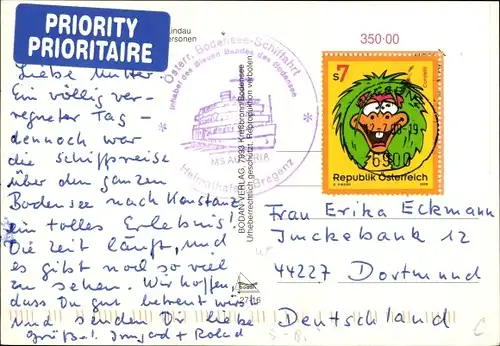 PRIORITY
PRIORITAIRE
Lindau
ersonen
350·00
Liebe Mutter
Ein völlig ver-
regneter Tag -
dennoch war
die Schiffsreise
über den ganzen
Bodensee nach Konstanz
ein tolles Erlebnis!
Die Zeit läuft, und
es gibt noch so viel
zu sehen. Wir hoffen,
dass Du gut betreut wirst
und senden Dir liebe
Grüße! Irmgard + Roland
Österr. Bodensee-Schiffahrt
Inhaber des Blauen Bandes des Bodensee
MS AUSTRIA
Heimathafen Bregenz
BODAN-VERLAG, 7993 Kressbronn/Bodensee
Urheberrechtlich geschützt. Reproduktion verboten
S7
6900
Republik Österreich
Frau Erika Eckmann
Imckebank 12
44227 Dortmund
Deutschland